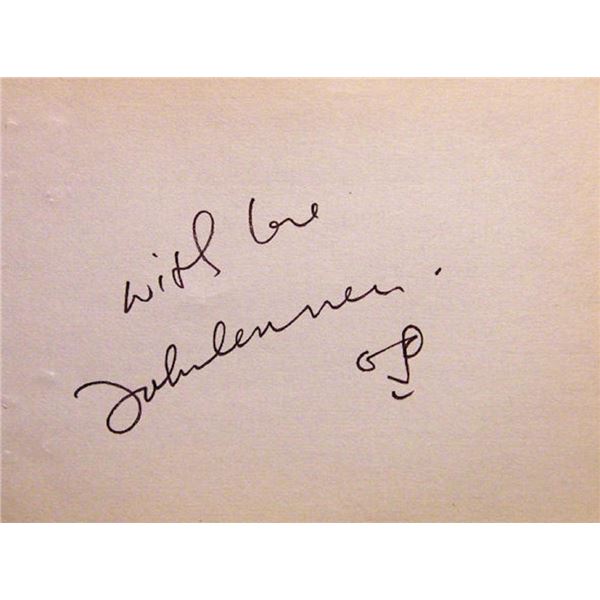 with love
John Lennon.